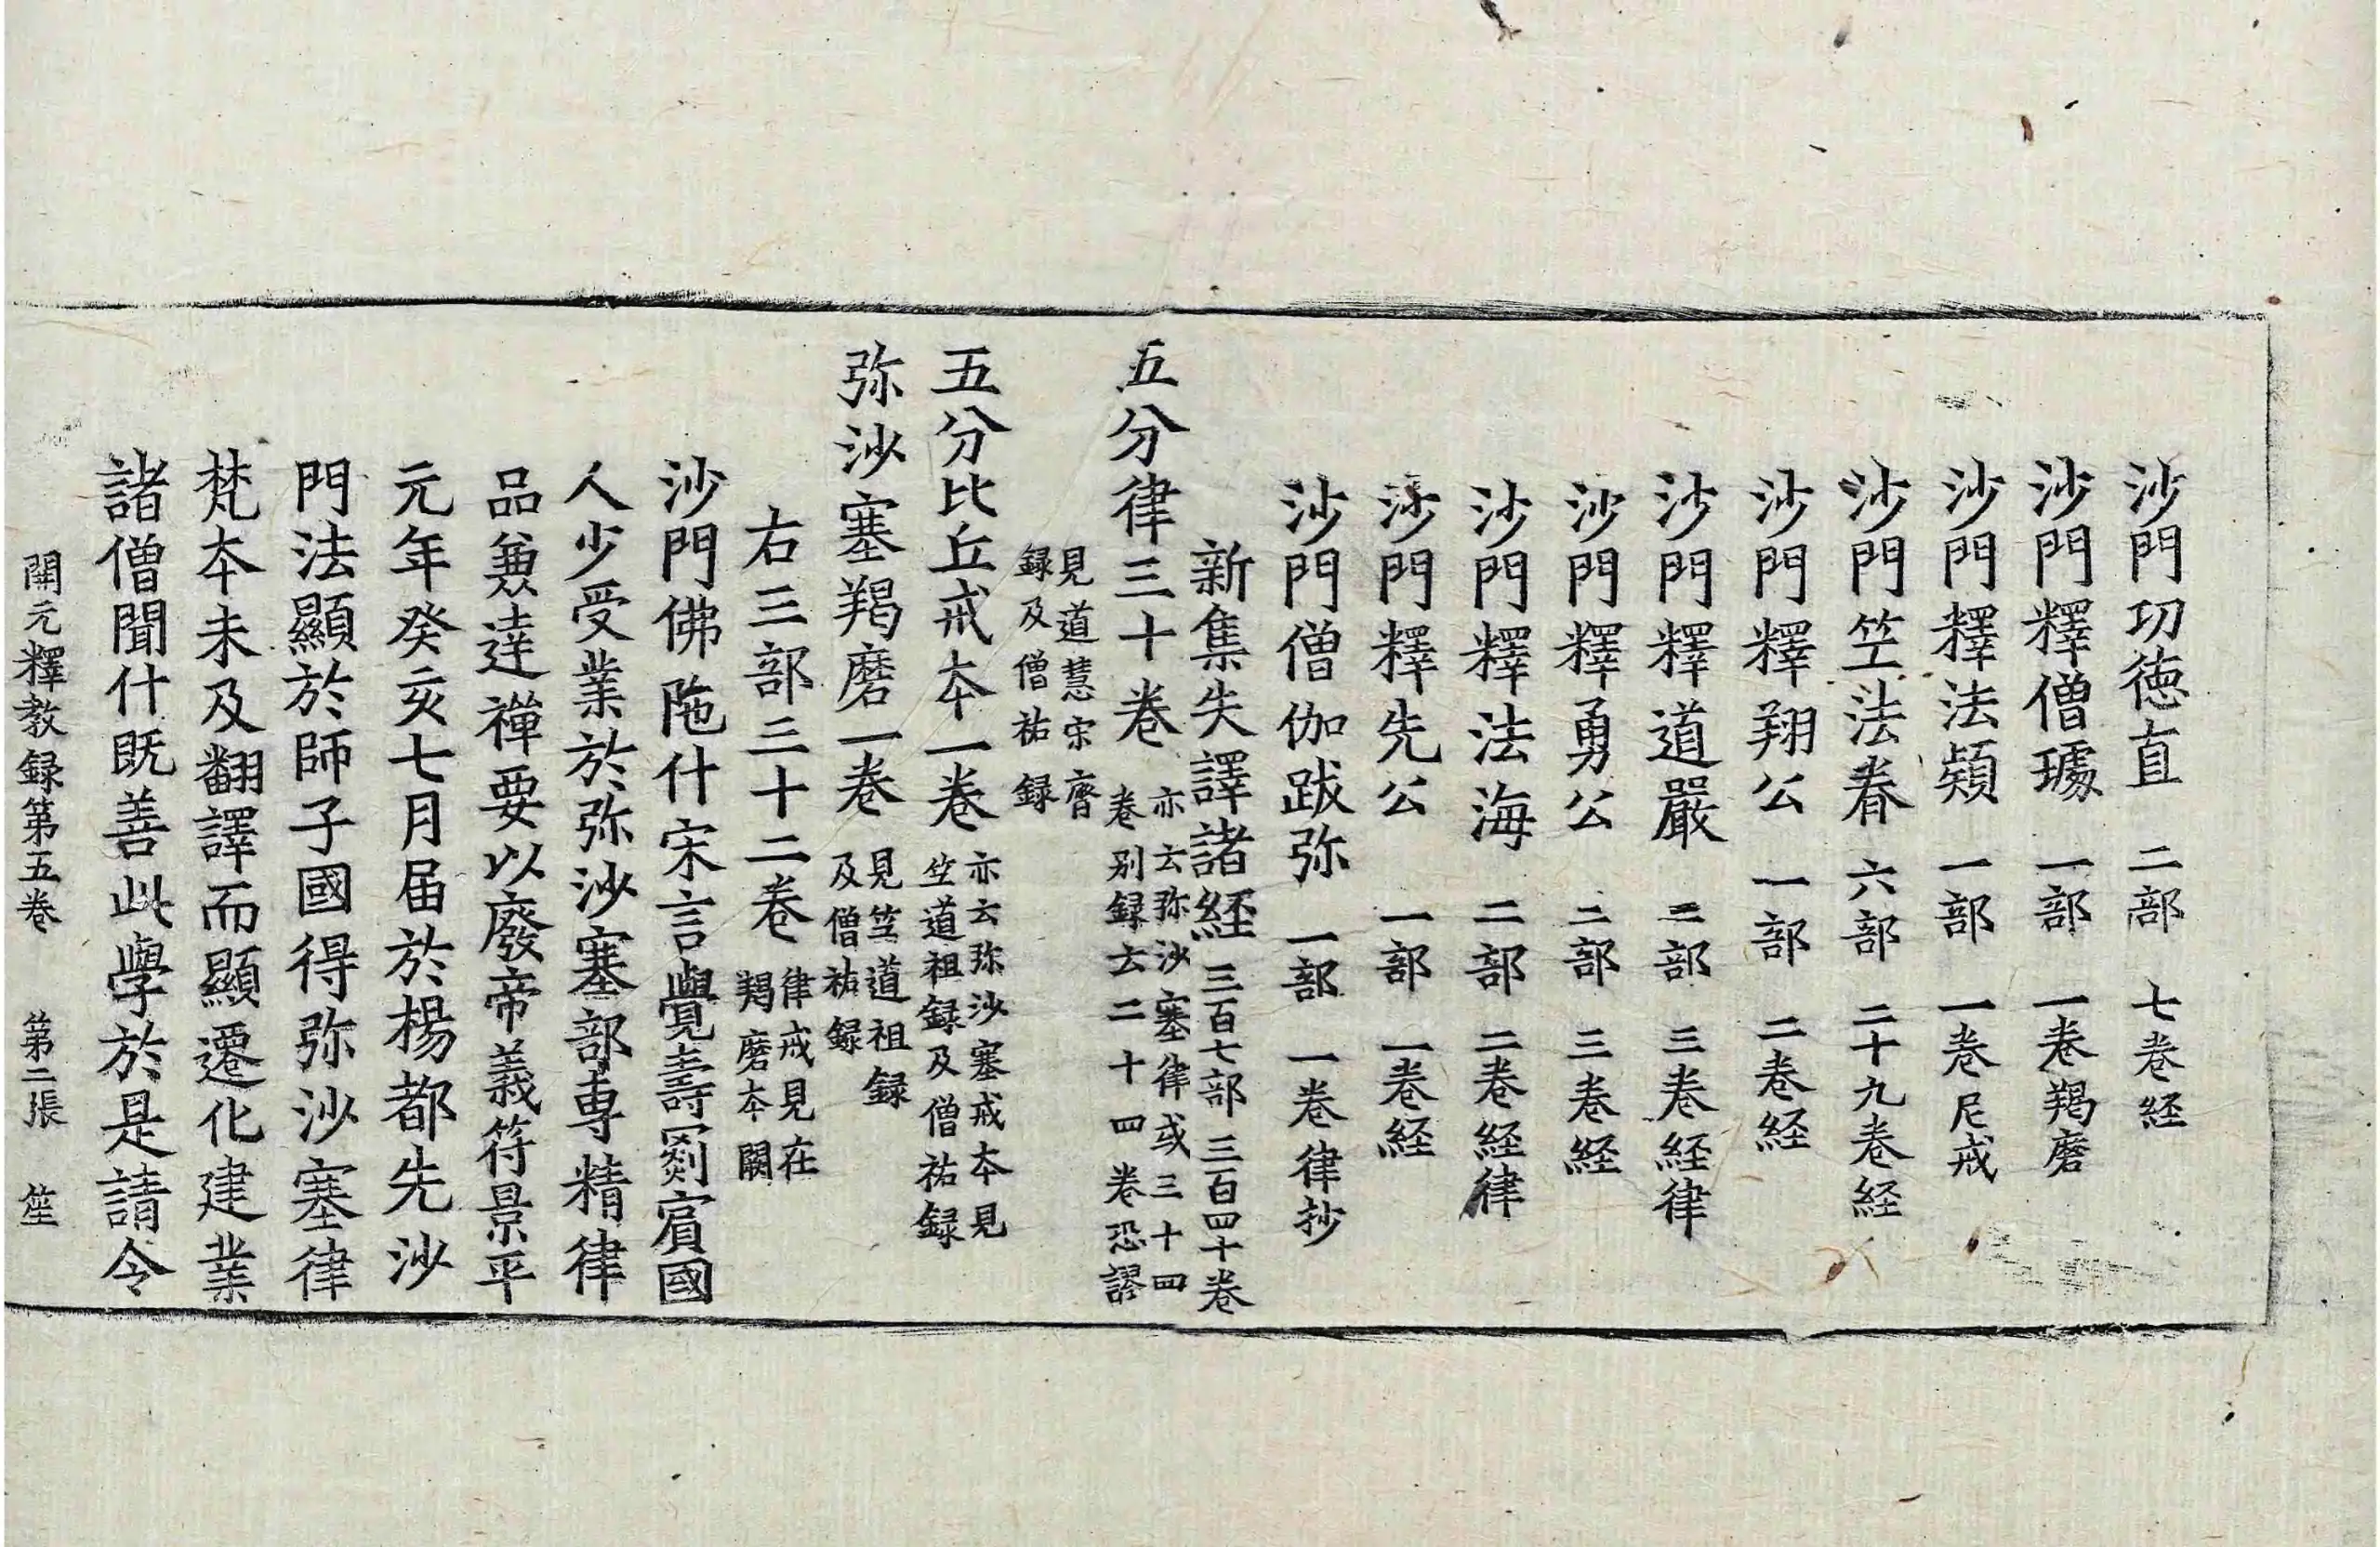 沙門㓛徳直 二部 七卷経
沙門釋僧璩 一部 一卷羯磨
沙門釋法頴 一部 一卷尼戒
沙門竺法眷 六部 二十九卷経
沙門釋翔公 一部 二卷経
沙門釋道嚴 二部 三卷経律
沙門釋勇公 二部 三卷経
沙門釋法海 二部 二卷経律
沙門釋先公 一部 一卷経
沙門僧伽跋弥 一部 一卷律抄
新集失譯諸経 三百七部 三百四十卷
五分律三十卷 亦云弥沙塞律或三十四
卷别録云二十四卷恐謬
見道慧宋齊
録及僧祐録
五分比丘戒本一卷 亦云弥沙塞戒本見
竺道祖録及僧祐録
弥沙塞羯磨一卷 見竺道祖録
及僧祐録
右三部三十二卷 律戒見在
羯磨本闕
沙門佛陁什宋言覺壽罽賔國
人少受業於弥沙塞部專精律
品兼達禪要以廢帝義符景平
元年癸亥七月届於楊都先沙
門法顯於師子國得弥沙塞律
梵本未及翻譯而顯遷化建業
諸僧聞什既善此學於是請令
開元釋教録第五卷 第二張 笙